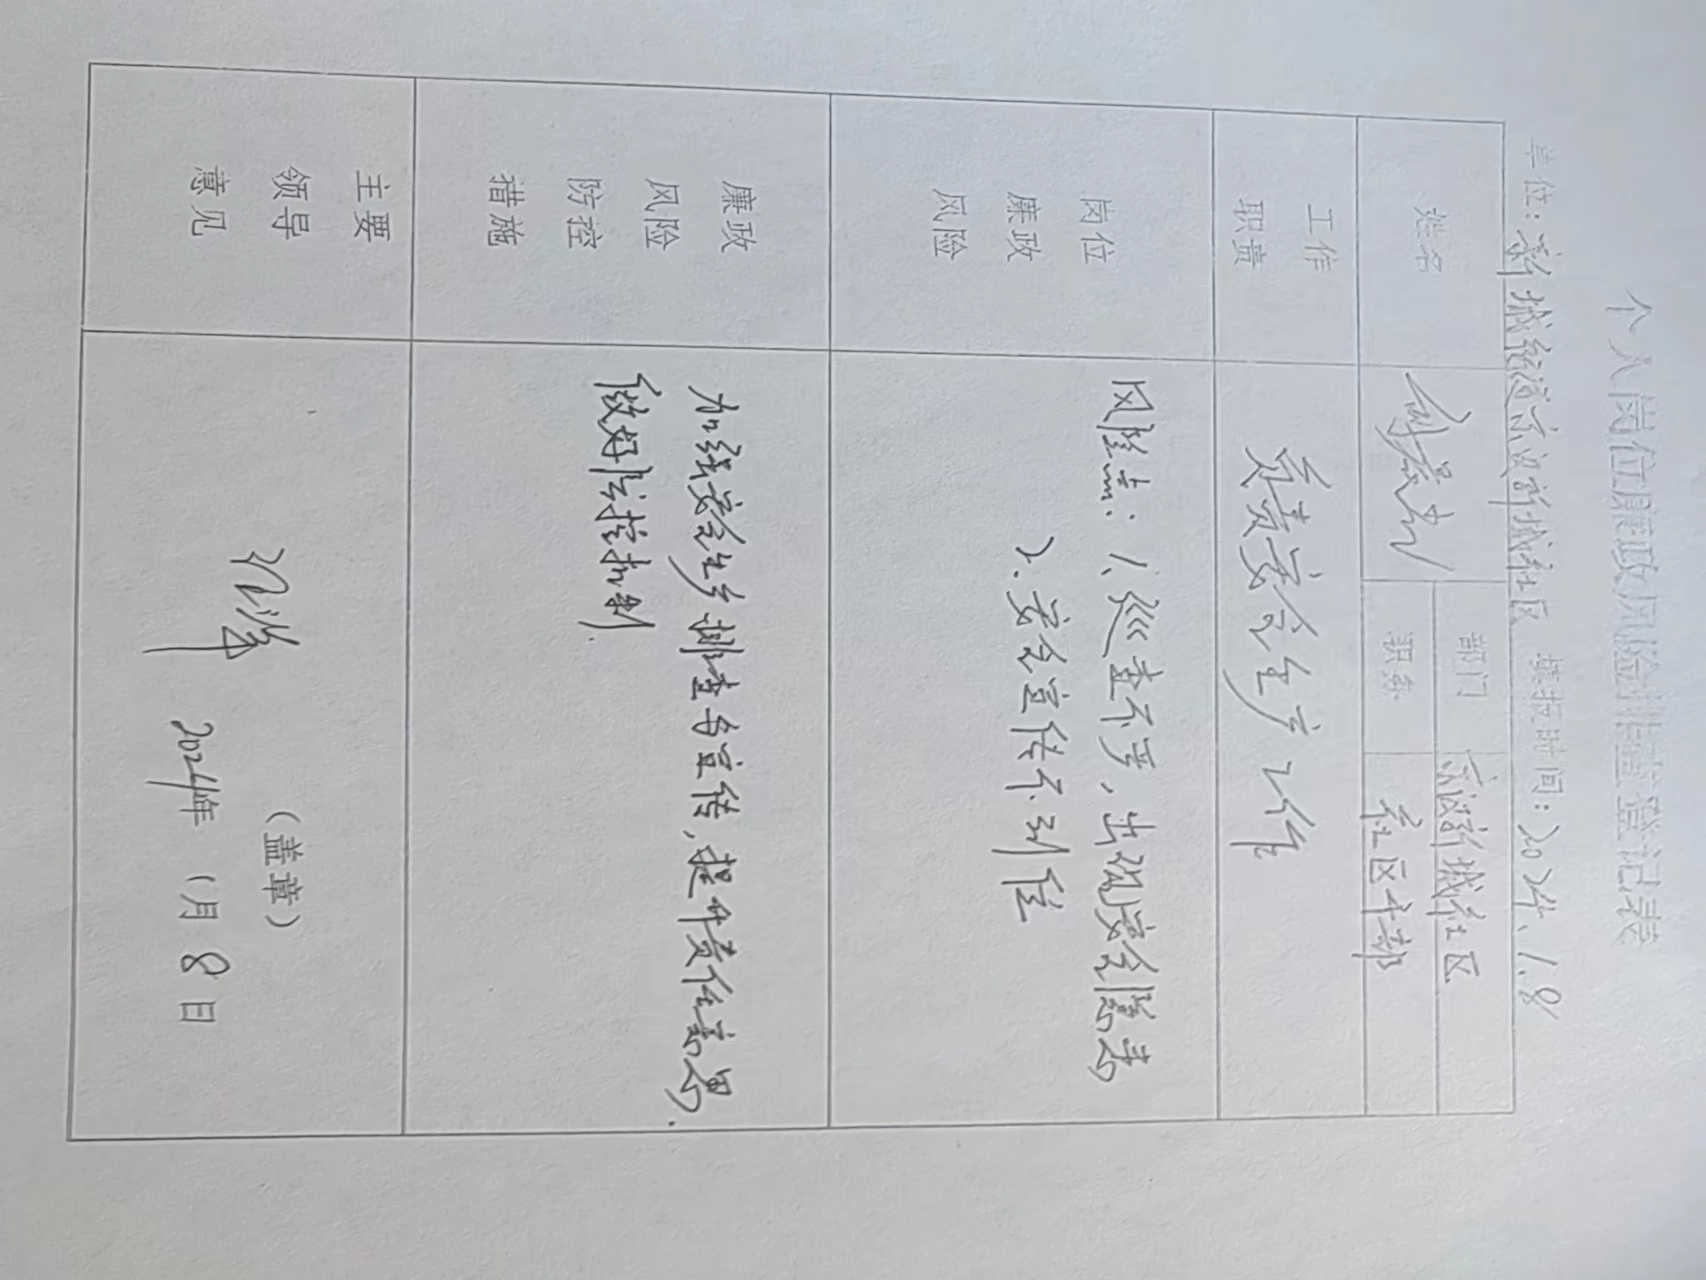 个人岗位廉政风险排查登记表
单位：新城街道京汉新城社区 填报时间：2024.1.8
姓名 部门 京汉新城社区
职务 社区干部
工作职责 负责安全生产工作
岗位廉政风险 风险点：1、巡查不严，出现安全隐患
2.安全宣传不到位
廉政风险防控措施 加强安全生产排查与宣传，提升责任意识.
做好防控机制.
主要领导意见
（盖章）
2024年1月8日